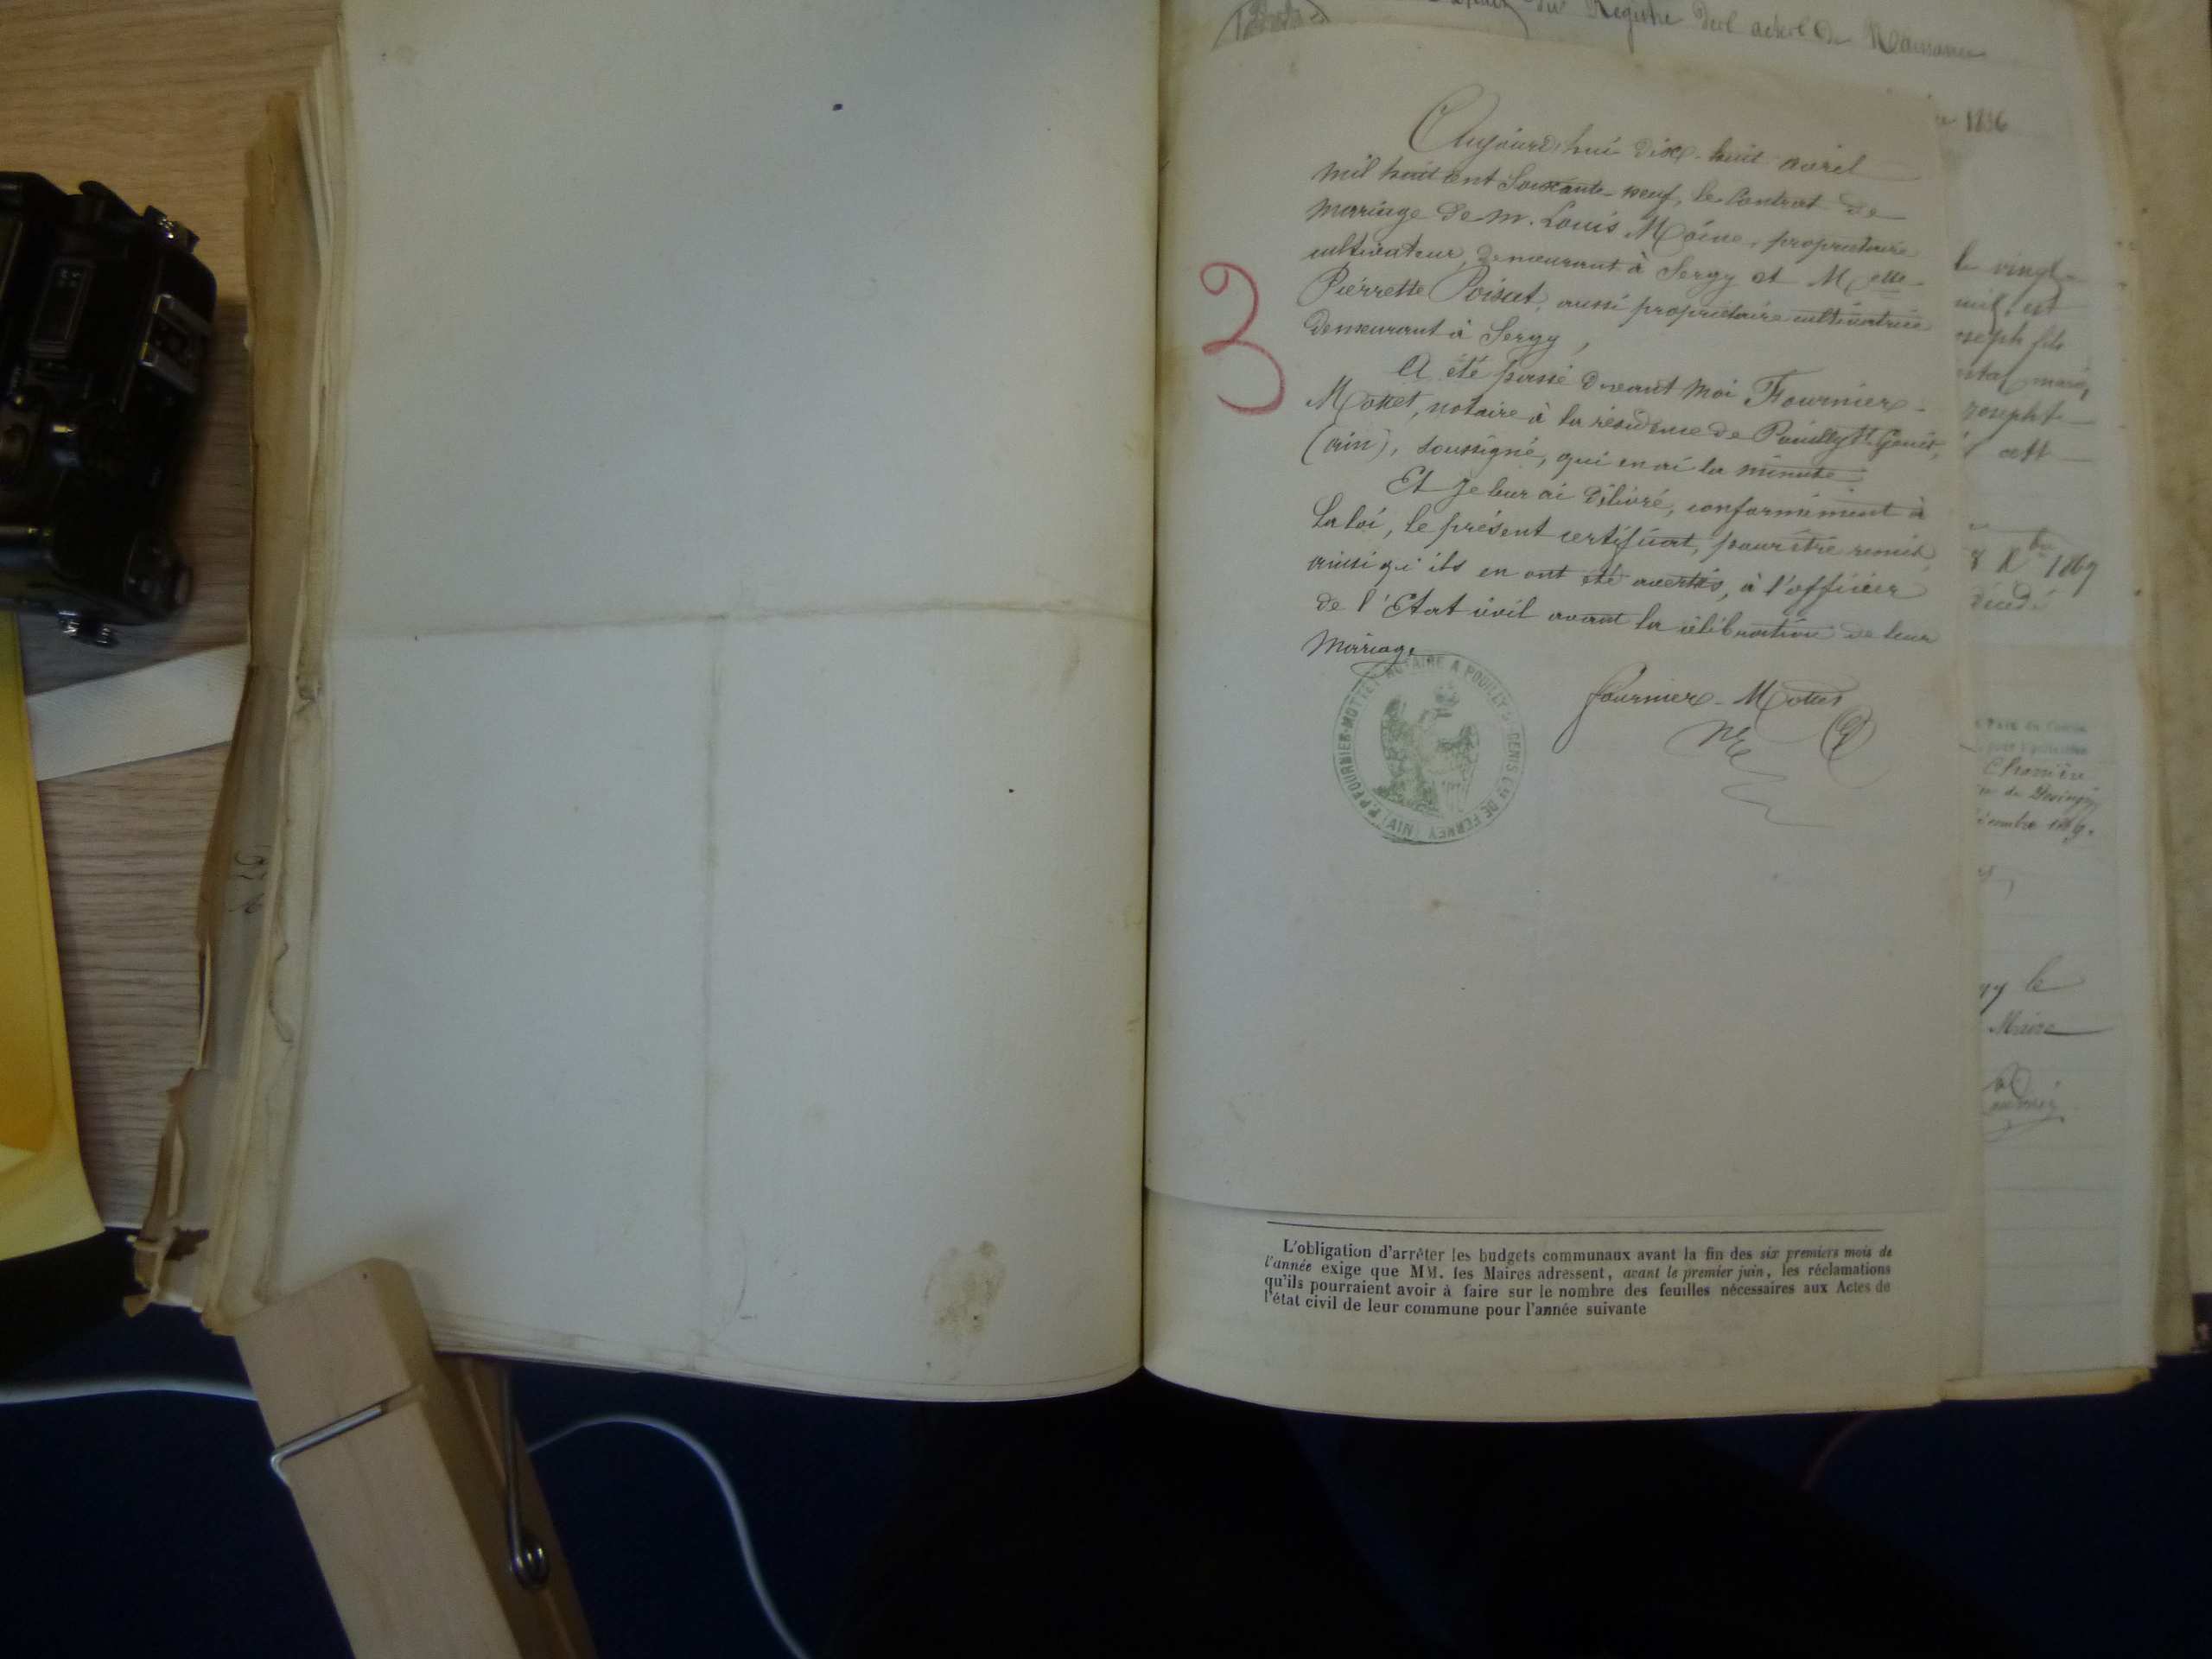 du Registre des actes de Naissance
1836
Aujourd'hui dix-huit avril
mil huit cent soixante-neuf, le Contrat de
mariage de m. Louis Moine, propriétaire
cultivateur, demeurant à Sergy et Melle
Pierrette Poisat, aussi propriétaire cultivatrice
demeurant à Sergy,
A été passé devant moi Fournier-
Mottet, notaire à la résidence de Pouilly St Genis,
(ain), soussigné, qui en ai la minute.
Et je leur ai délivré, conformément à
la loi, le présent certificat, pour être remis,
ainsi qu'ils en ont été avertis, à l'officier
de l'Etat civil avant la célébration de leur
mariage
Fournier-Mottet
P.P FOURNIER-MOTTET NOTAIRE A POUILLY ST GENIS CON DE FERNEY (AIN)
3
le vingt
mil
joseph fils
joseph
1869
décédé
le
Maire
L'obligation d'arrêter les budgets communaux avant la fin des six premiers mois de
l'année exige que MM. les Maires adressent, avant le premier juin, les réclamations
qu'ils pourraient avoir à faire sur le nombre des feuilles nécessaires aux Actes de
l'état civil de leur commune pour l'année suivante